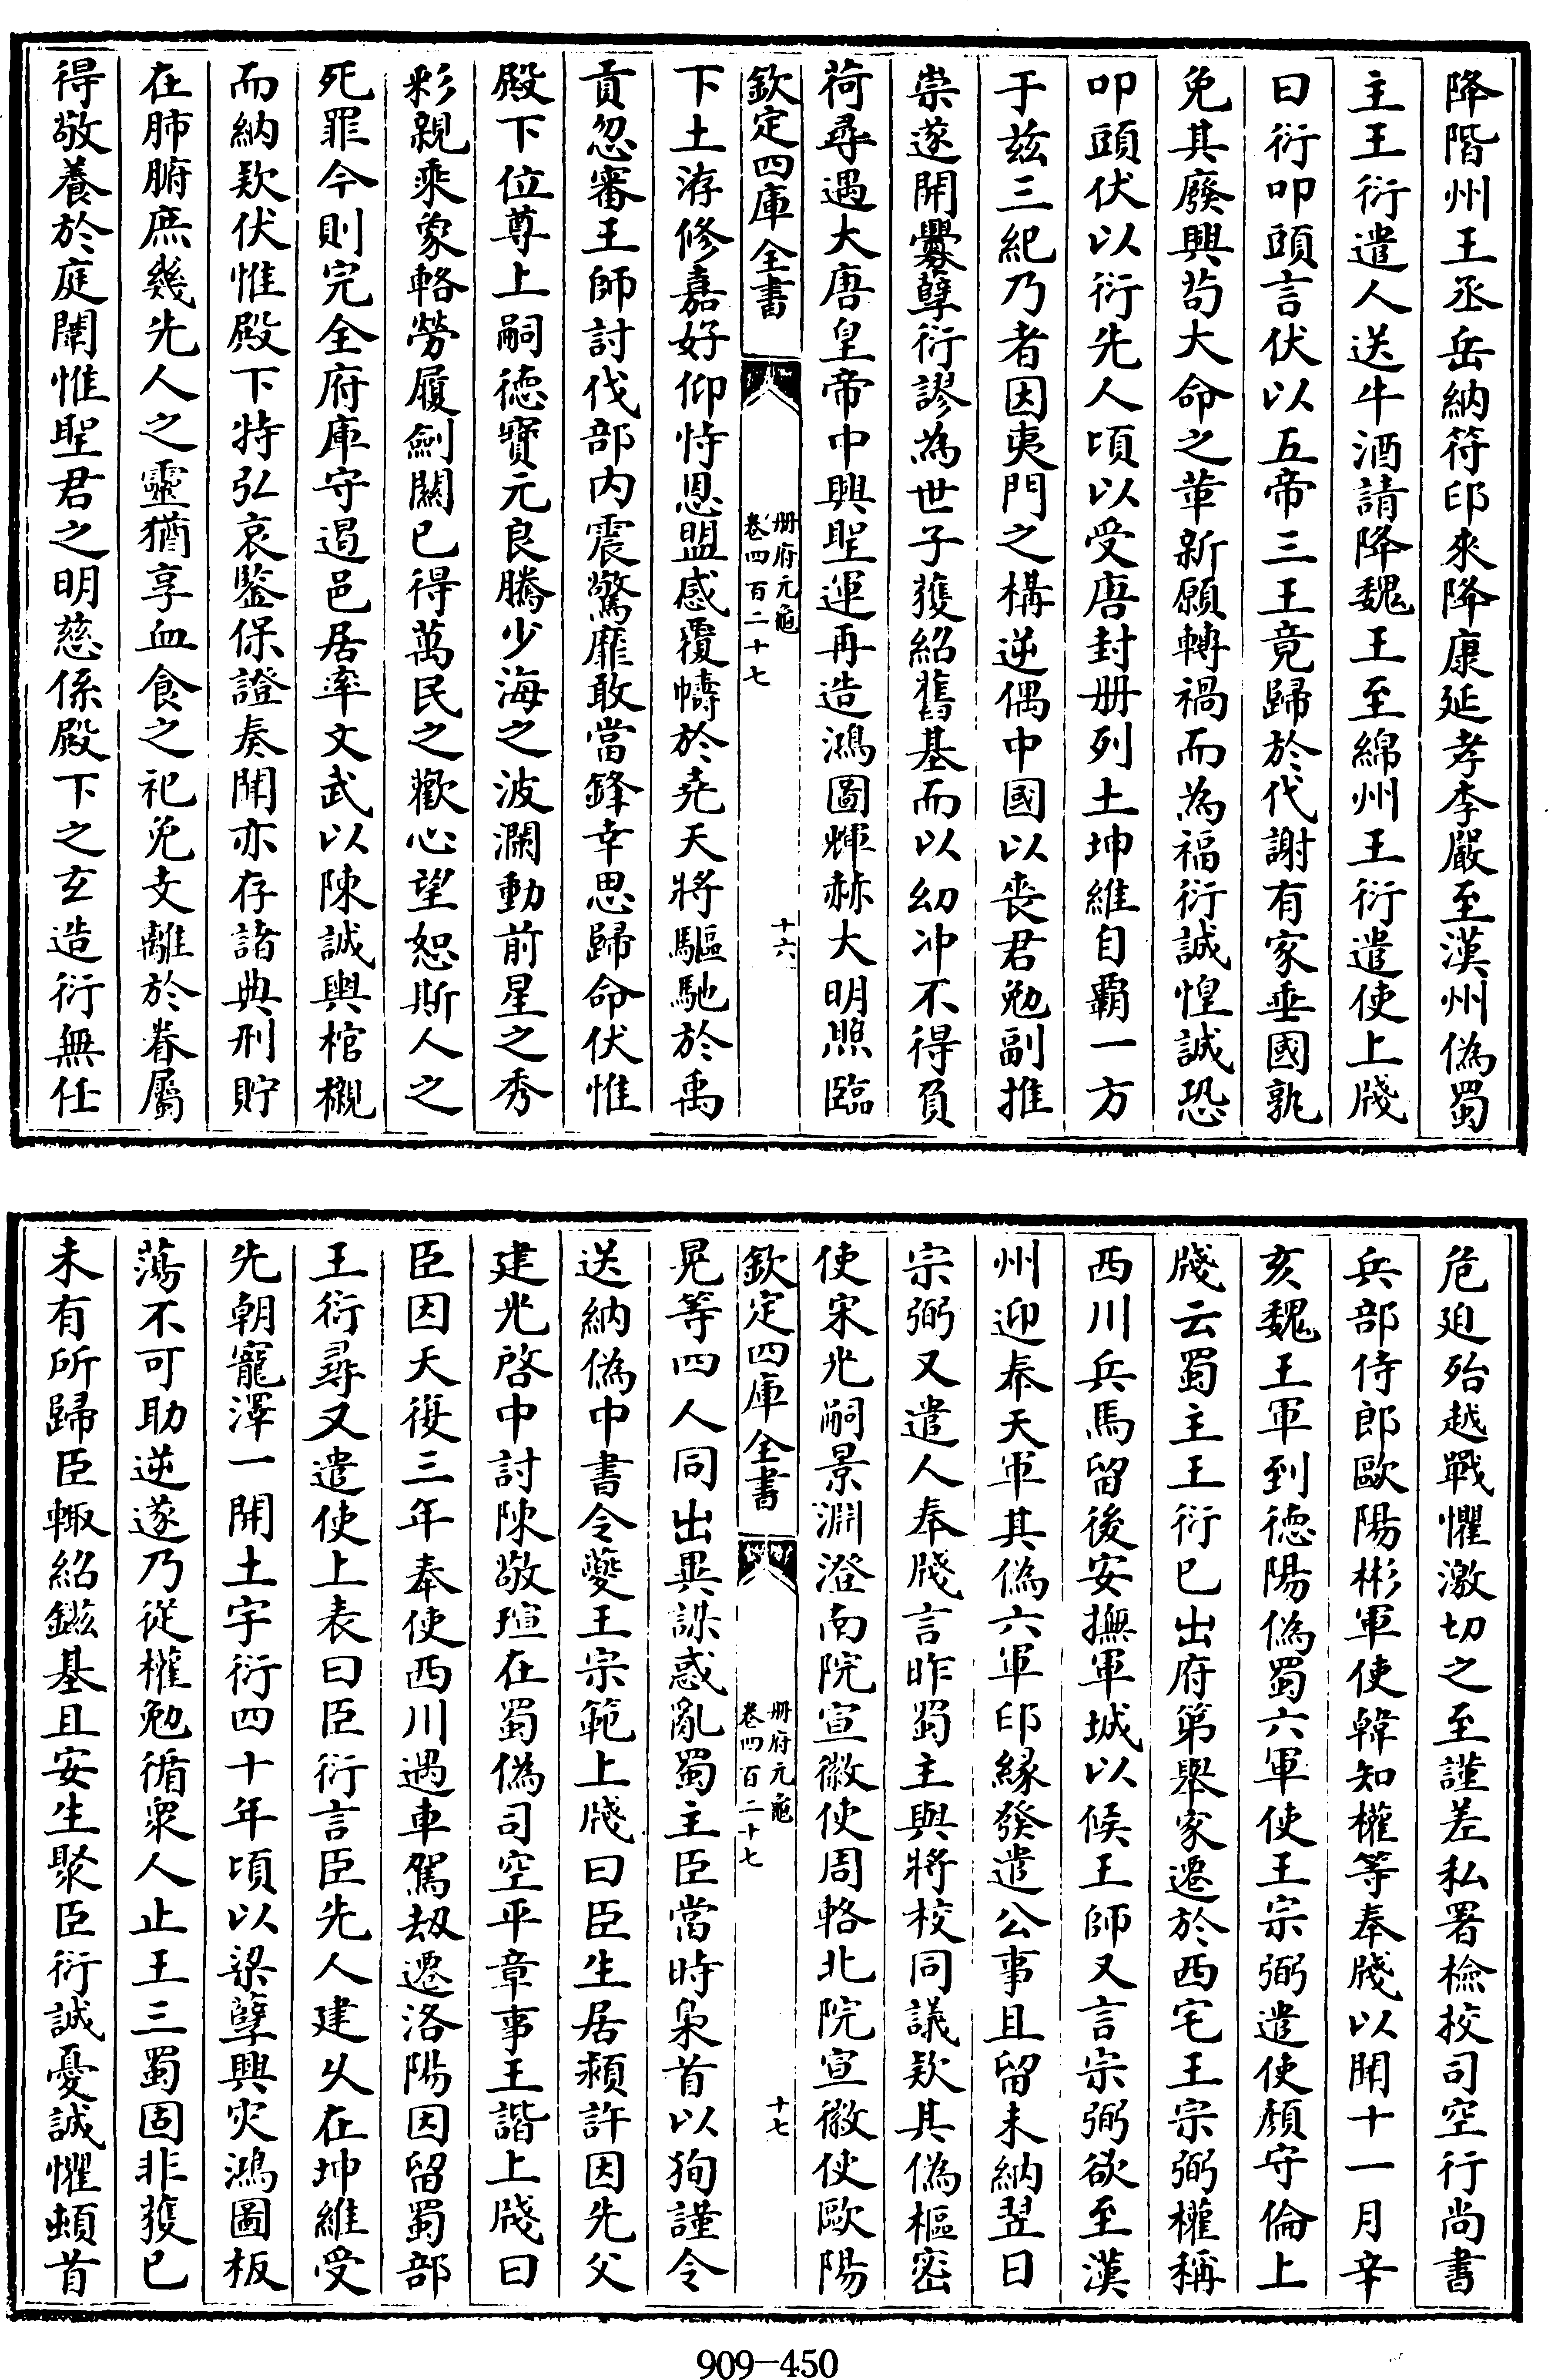 降階州王丞岳納符印來降康延孝李嚴至漢州偽蜀
主王衍遣人送牛酒請降魏王至綿州王衍遣使上牋
曰衍叩頭言伏以五帝三王竟歸於代謝有家垂國孰
免其廢興茍大命之革新願轉禍而為福衍誠惶誠恐
叩頭伏以衍先人頃以受唐封册列土坤維自霸一方
于兹三紀乃者因夷門之構逆偶中國以喪君勉副推
崇遂開釁孽衍謬為世子獲紹舊基而以幼冲不得負
荷尋遇大唐皇帝中興聖運再造鴻圖輝赫大明照臨
欽定四庫全書
册府元龜
卷四百二十七
十六
下土洊修嘉好仰恃恩盟感覆幬於堯天將驅馳於禹
貢忽審王師討伐部内震驚靡敢當鋒幸思歸命伏惟
殿下位尊上嗣徳寶元良騰少海之波瀾動前星之秀
彩親乘象輅勞履劍闗已得萬民之歡心望恕斯人之
死罪今則完全府庫守遏邑居率文武以陳誠輿棺櫬
而納欵伏惟殿下特弘哀鑒保證奏聞亦存諸典刑貯
在肺腑庶幾先人之靈猶享血食之祀免支離於眷屬
得敬養於庭闈惟聖君之明慈係殿下之玄造衍無任
危廹殆越戰懼激切之至謹差私署檢校司空行尚書
兵部侍郎歐陽彬軍使韓知權等奉牋以聞十一月辛
亥魏王軍到徳陽偽蜀六軍使王宗弼遣使顏守倫上
牋云蜀主王衍已出府第舉家遷於西宅王宗弼權稱
西川兵馬留後安撫軍城以候王師又言宗弼欲至漢
州迎奉天軍其偽六軍印緣發遣公事且留未納翌日
宗弼又遣人奉牋言昨蜀主與將校同議欵其偽樞密
使宋光嗣景淵澄南院宣徽使周輅北院宣徽使歐陽
欽定四庫全書
册府元龜
卷四百二十七
十七
晃等四人同出異謀惑亂蜀主臣當時梟首以狥謹令
送納偽中書令夔王宗範上牋曰臣生居頰許因先父
建光啓中討陳敬瑄在蜀偽司空平章事王鍇上牋曰
臣因天復三年奉使西川遇車駕劫遷洛陽因留蜀部
王衍尋又遣使上表曰臣衍言臣先人建乆在坤維受
先朝寵澤一開土宇衍四十年頃以梁孽興灾鴻圖板
蕩不可助逆遂乃從權勉循衆人止王三蜀固非獲已
未有所歸臣輙紹鎡基且安生聚臣衍誠憂誠懼頓首
909—450